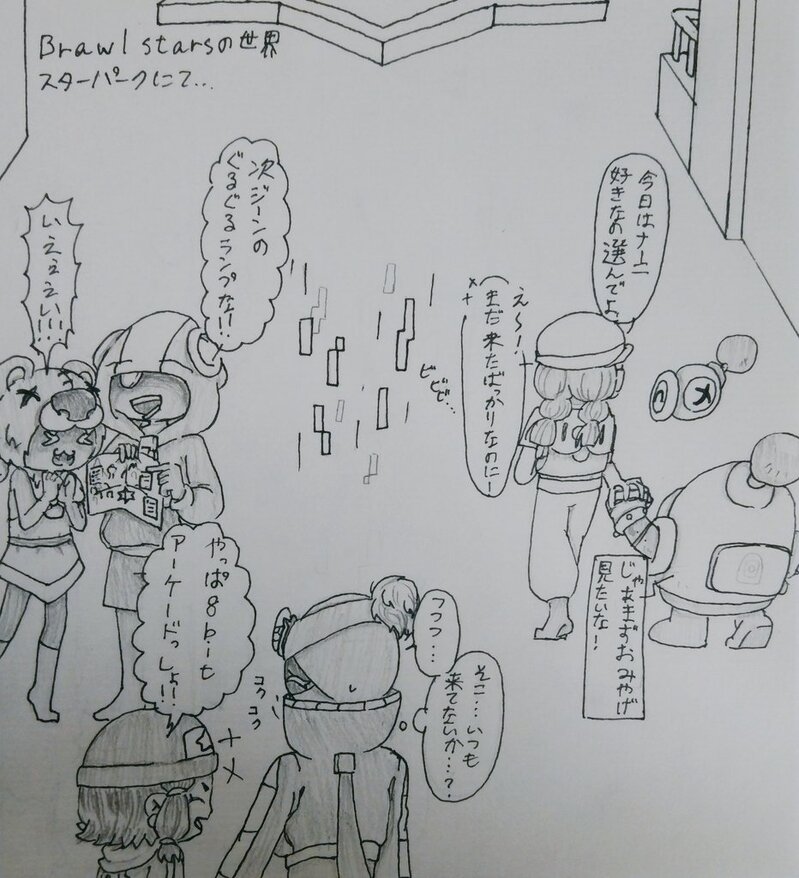 Brawl starsの世界
スターパークにて…
今日はナーニ
好きなの選んでよ。
次ジーンの
ぐるぐるランプな!!
いえぇぇい!!!
え〜!
まだ来たばっかりなのにー
ビビビ…
じゃあまずおみやげ
見たいな!
やっぱ8bitも
アーケードっしょ!!
フフフ…
そこ…いつも
来てないか…?
コクコク